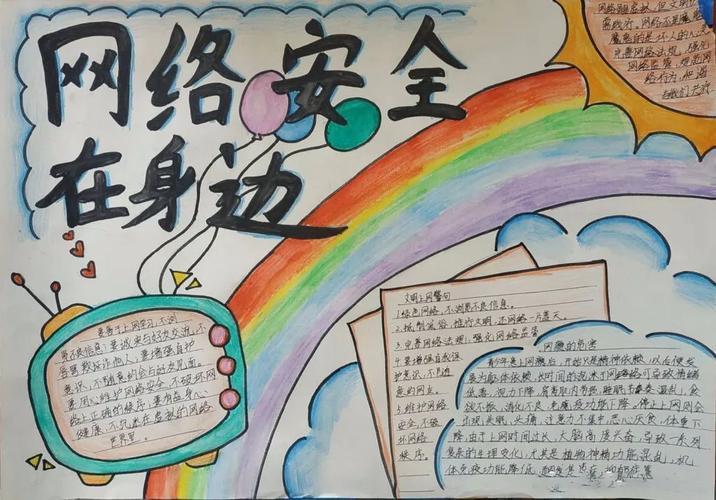 网络安全
在身边
网络虽虚拟,但文明
需践行。网络不是魔鬼,
魔鬼的是坏人的心灵
完善网络法规,强化
网络监管,规范网
络行为,和谐
要善于上网学习,不浏
览不良信息;要诚实与好友交流,不
侮辱欺诈他人;要增强自护
意识,不随意约会网友见面。
要用心维护网络安全,不破坏网
络上正确的秩序;要有益身心
健康,不沉迷在虚拟的网络
世界里。
文明上网警句
1.绿色网络,不浏览不良信息。
2.抵制低俗,践行文明,还网络一片蓝天。
3.完善网络法规,强化网络监管
4.要增强自我保
护意识,不见随
意的网友。
5.维护网络
安全,不破
坏网络
秩序。
网瘾的危害
青少年患上网瘾后,开始只是精神依赖,以后便发
展为躯体依赖,长时间的沉迷于网络可导致情绪
低落,视力下降,肩背肌肉劳损,睡眠节奏紊乱,食
欲不振,消化不良,免疫功能下降。停止上网则会
出现失眠,头痛,注意力不集中,恶心厌食,体重下
降。由于上网时间过长,大脑高度兴奋,导致一系列
复杂的生理变化,尤其是植物神精功能紊乱,机
体免疫功能降低